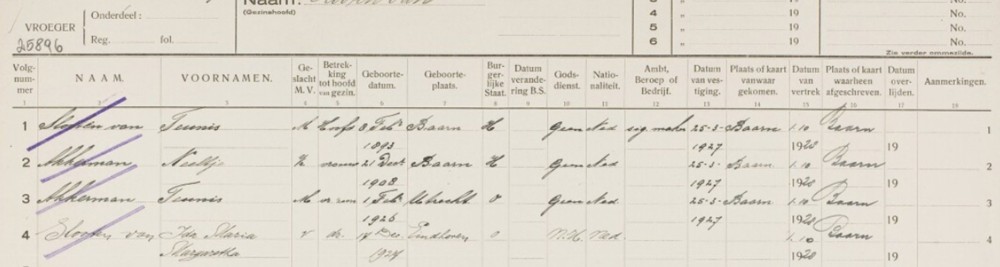 Onderdeel:
VROEGER
Reg. fol.
25896
Naam:
(Gezinshoofd)
4 " 19 No.
5 " 19 No.
6 " 19 No.
Zie verder ommezijde.
Volgnummer NAAM. VOORNAMEN. Geslacht M. V. Betrekking tot hoofd van gezin. Geboortedatum. Geboorteplaats. Burgerlijke Staat. Datum verandering B.S. Godsdienst. Nationaliteit. Ambt, Beroep of Bedrijf. Datum van vestiging. Plaats of kaart vanwaar gekomen. Datum van vertrek Plaats of kaart waarheen afgeschreven. Datum overlijden. Aanmerkingen.
1 van Teunis M Hoofd 8 Feb. Baarn H Geen Ned 25-3- Baarn 1.10 Baarn 1
1893 1927 1928 19
2 Akkerman Neeltje vrouw 21 Baarn H Geen Ned 25-3- Baarn 1.10 Baarn 2
1908 1927 1928 19
3 Akkerman Teunis M 1 Feb. Utrecht O Geen Ned 25-3- Baarn 1.10 Baarn 3
1926 1927 1928 19
4 van Ida Maria v d. 17 Dec. Eindhoven O N.H. Ned. 1.10 Baarn 4
Margaretha 1927 1928 19